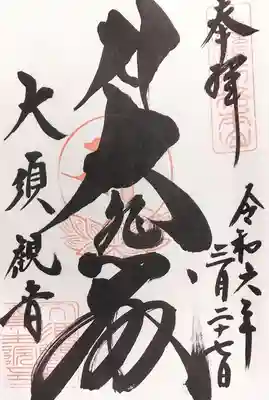 奉拝
令和六年
三月二十七日
大悲殿
大須観音